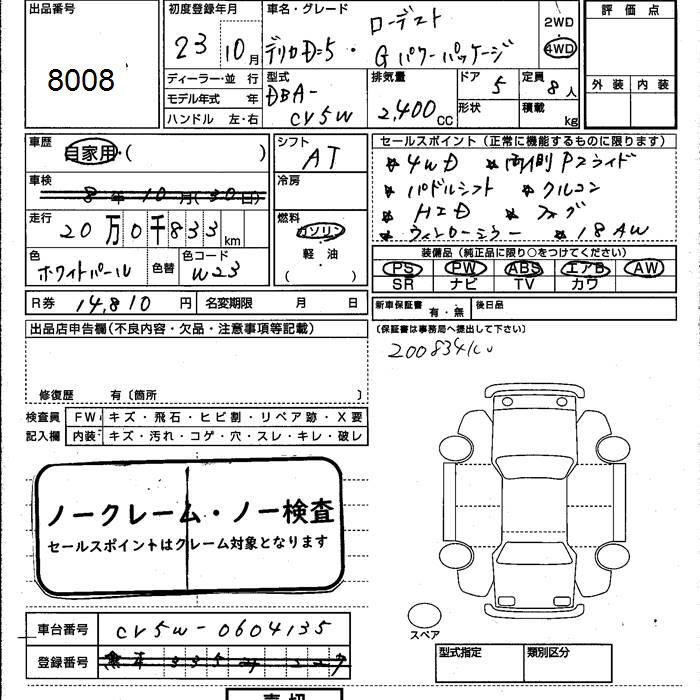 出品番号
8008
初度登録年月
23 10月
車名・グレード
ローデスト
デリカD=5・Gパワーパッケージ
2WD
4WD
評価点
外装 内装
ディーラー・並 行
モデル年式 年
ハンドル 左・右
型式
DBA-
CV5W
排気量
2,400cc
ドア
5
形状
定員
8人
積載
kg
車歴
自家用・( )
シフト
AT
車検
8年10月(30日)
冷房
走行
20万0千833km
燃料
ガソリン
軽・油
( )
色
ホワイトパール
色替
色コード
W23
R券 14,810円
名変期限 月 日
セールスポイント(正常に機能するものに限ります)
☆4WD ☆両側Pスライド
☆パドルシフト ☆クルコン
☆HID ☆フォグ
☆ウィンローミラー ☆18AW
装備品(純正品に限り○をつけてください)
PS PW ABS エアB AW
SR ナビ TV カワ
新車保証書 有・無
後日品
(保証書は事務局へ提出して下さい)
出品店申告欄(不良内容・欠品・注意事項等記載)
修復歴 有〔箇所 〕
検査員 FW キズ・飛石・ヒビ割・リペア跡・X要
記入欄 内装 キズ・汚れ・コゲ・穴・スレ・キレ・破レ
ノークレーム・ノー検査
セールスポイントはクレーム対象となります
スペア
車台番号 CV5W-0604135
登録番号
型式指定 類別区分